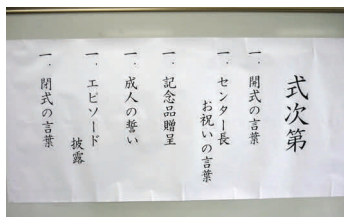 式次第
一．開式の言葉
一．センター長
お祝いの言葉
一．記念品贈呈
一．成人の誓い
一．エピソード
披露
一．閉式の言葉